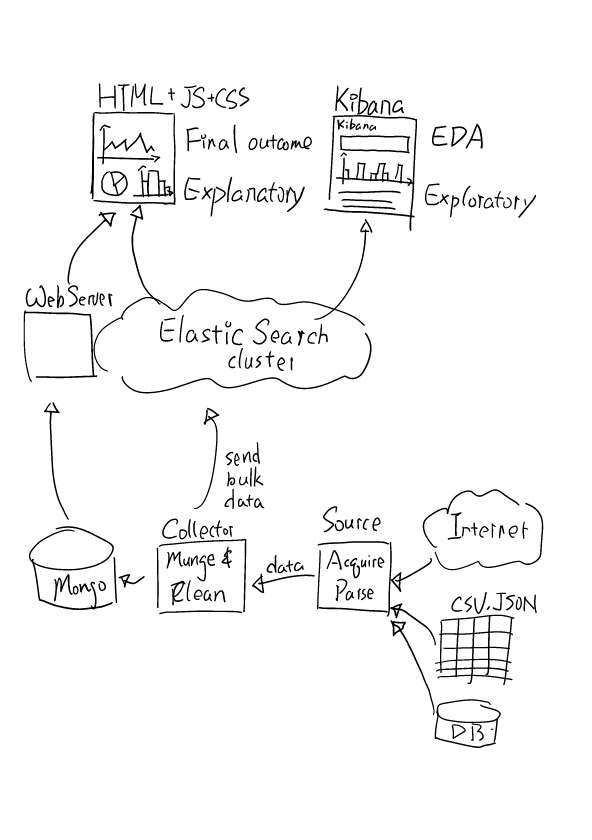 HTML+JS+CSS
Final outcome
Explanatory
Kibana
Kibana
EDA
Exploratory
WebServer
Elastic Search
cluster
send
bulk
data
Mongo
Collector
Munge &
Rlean
data
Source
Acquire
Parse
Internet
CSV.JSON
DB